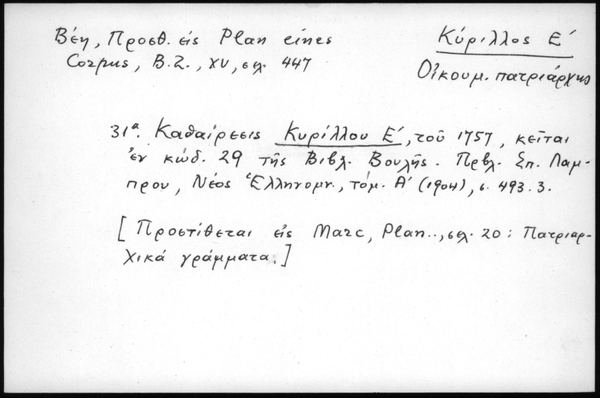 Βέη, Προσθ. εἰς Plan eines
Corpus, B.Z., XV, σελ. 447
Κύριλλος Ε΄
Οἰκουμ. πατριάρχης
31ᵃ. Καθαίρεσις Κυρίλλου Ε΄, τοῦ 1757, κεῖται
ἐν κώδ. 29 τῆς Βιβλ. Βουλῆς. Πρβλ. Σπ. Λαμ-
πρου, Νέος Ἑλληνομν., τόμ. Α΄ (1904), σ. 493.3.
[Προστίθεται εἰς Marc, Plan.., σελ. 20: Πατριαρ-
χικά γράμματα.]